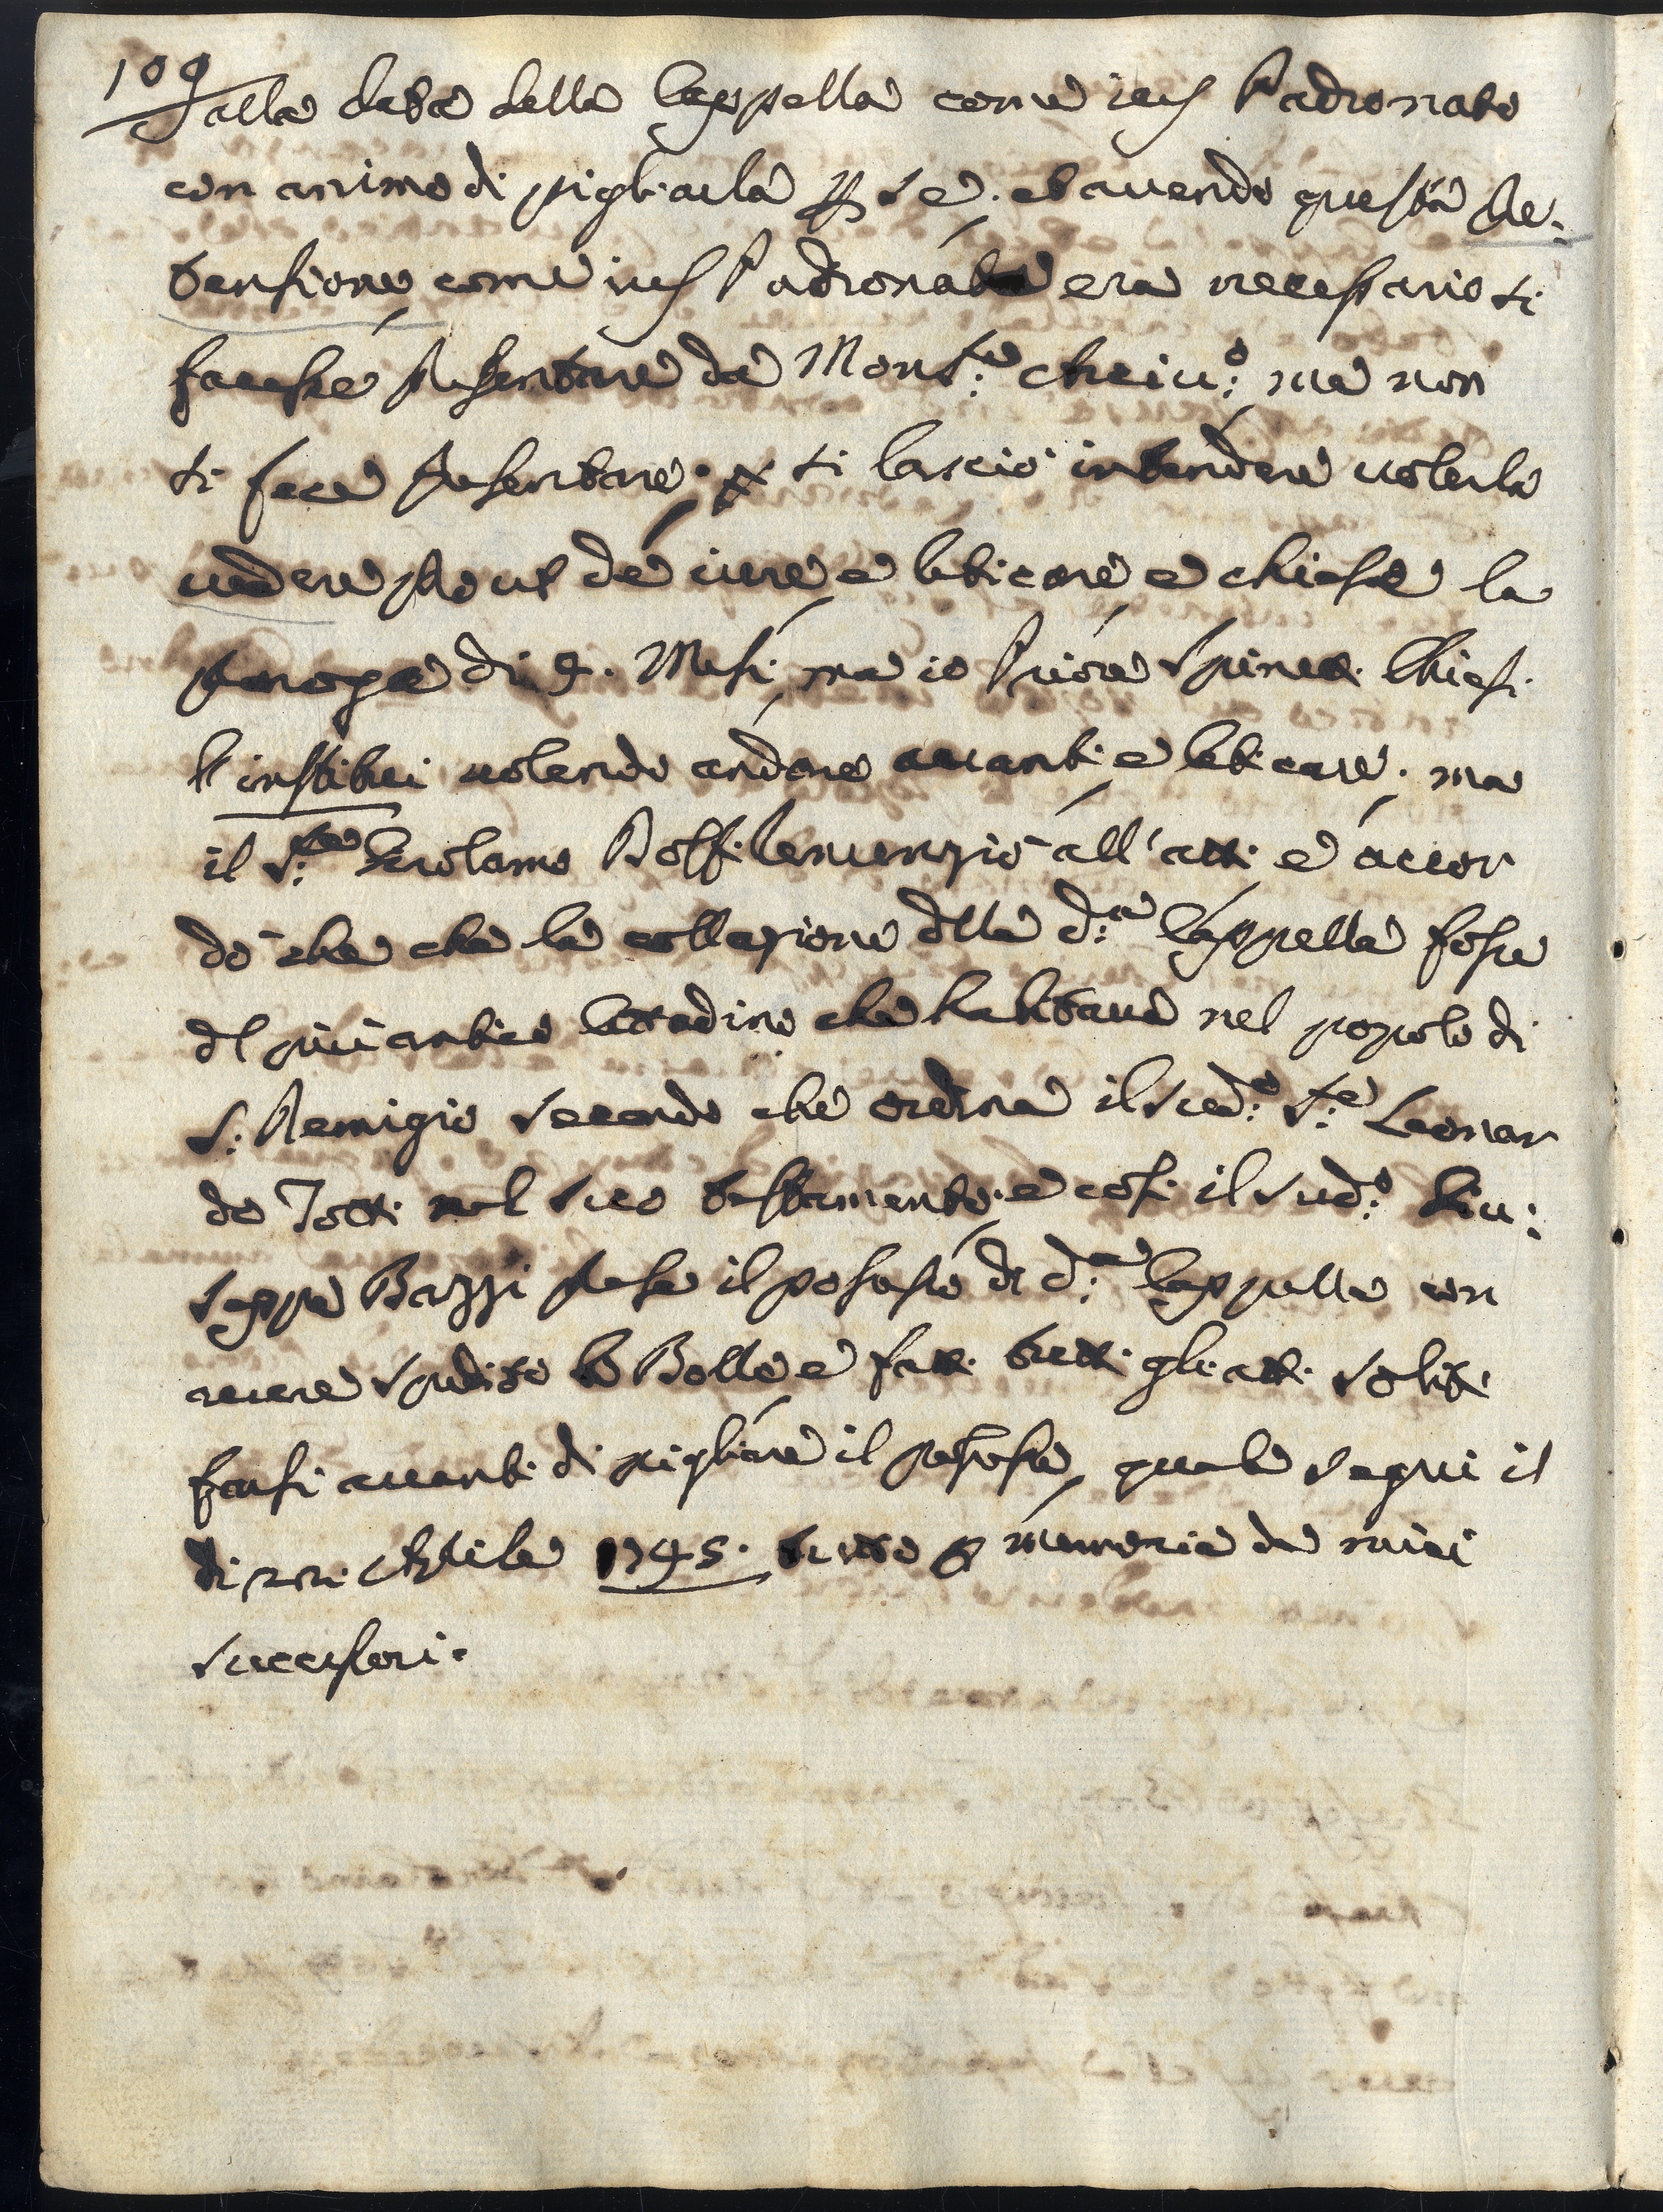 109
alla data della Cappella come ius Padronato
con animo di pigliarla p se. et avendo questa Pre:
tensione, come ius Padronato era necessario si
facesse presentare da Mons:re Arciv:o ma non
si fece presentare, si lasciò intendere volerla
vedere prout de iure, e leticare e chiese la
proroga di 9. Mesi, ma io Priore Spinelli Chiesi
l'institui volendo andare avanti e leticare. ma
il S:re Girolamo Bolfi renunziò all'atti e accor
dò che che la collazione dlla d:a Cappella fosse
dl più antico Cittadino che habitava nel popolo di
S: Remigio secondo che ordina il sud:o S:re Leonar
do Totti nel suo testamento e così il sud:o Giu:
seppe Bazzi prese il possesso di d:a Cappella con
avere spedito le Bolle e fatti tutti gli atti soliti
farsi avanti di pigliare il possesso, quale seguì il
di Aprile 1745. tutto p memoria de miei
successori.